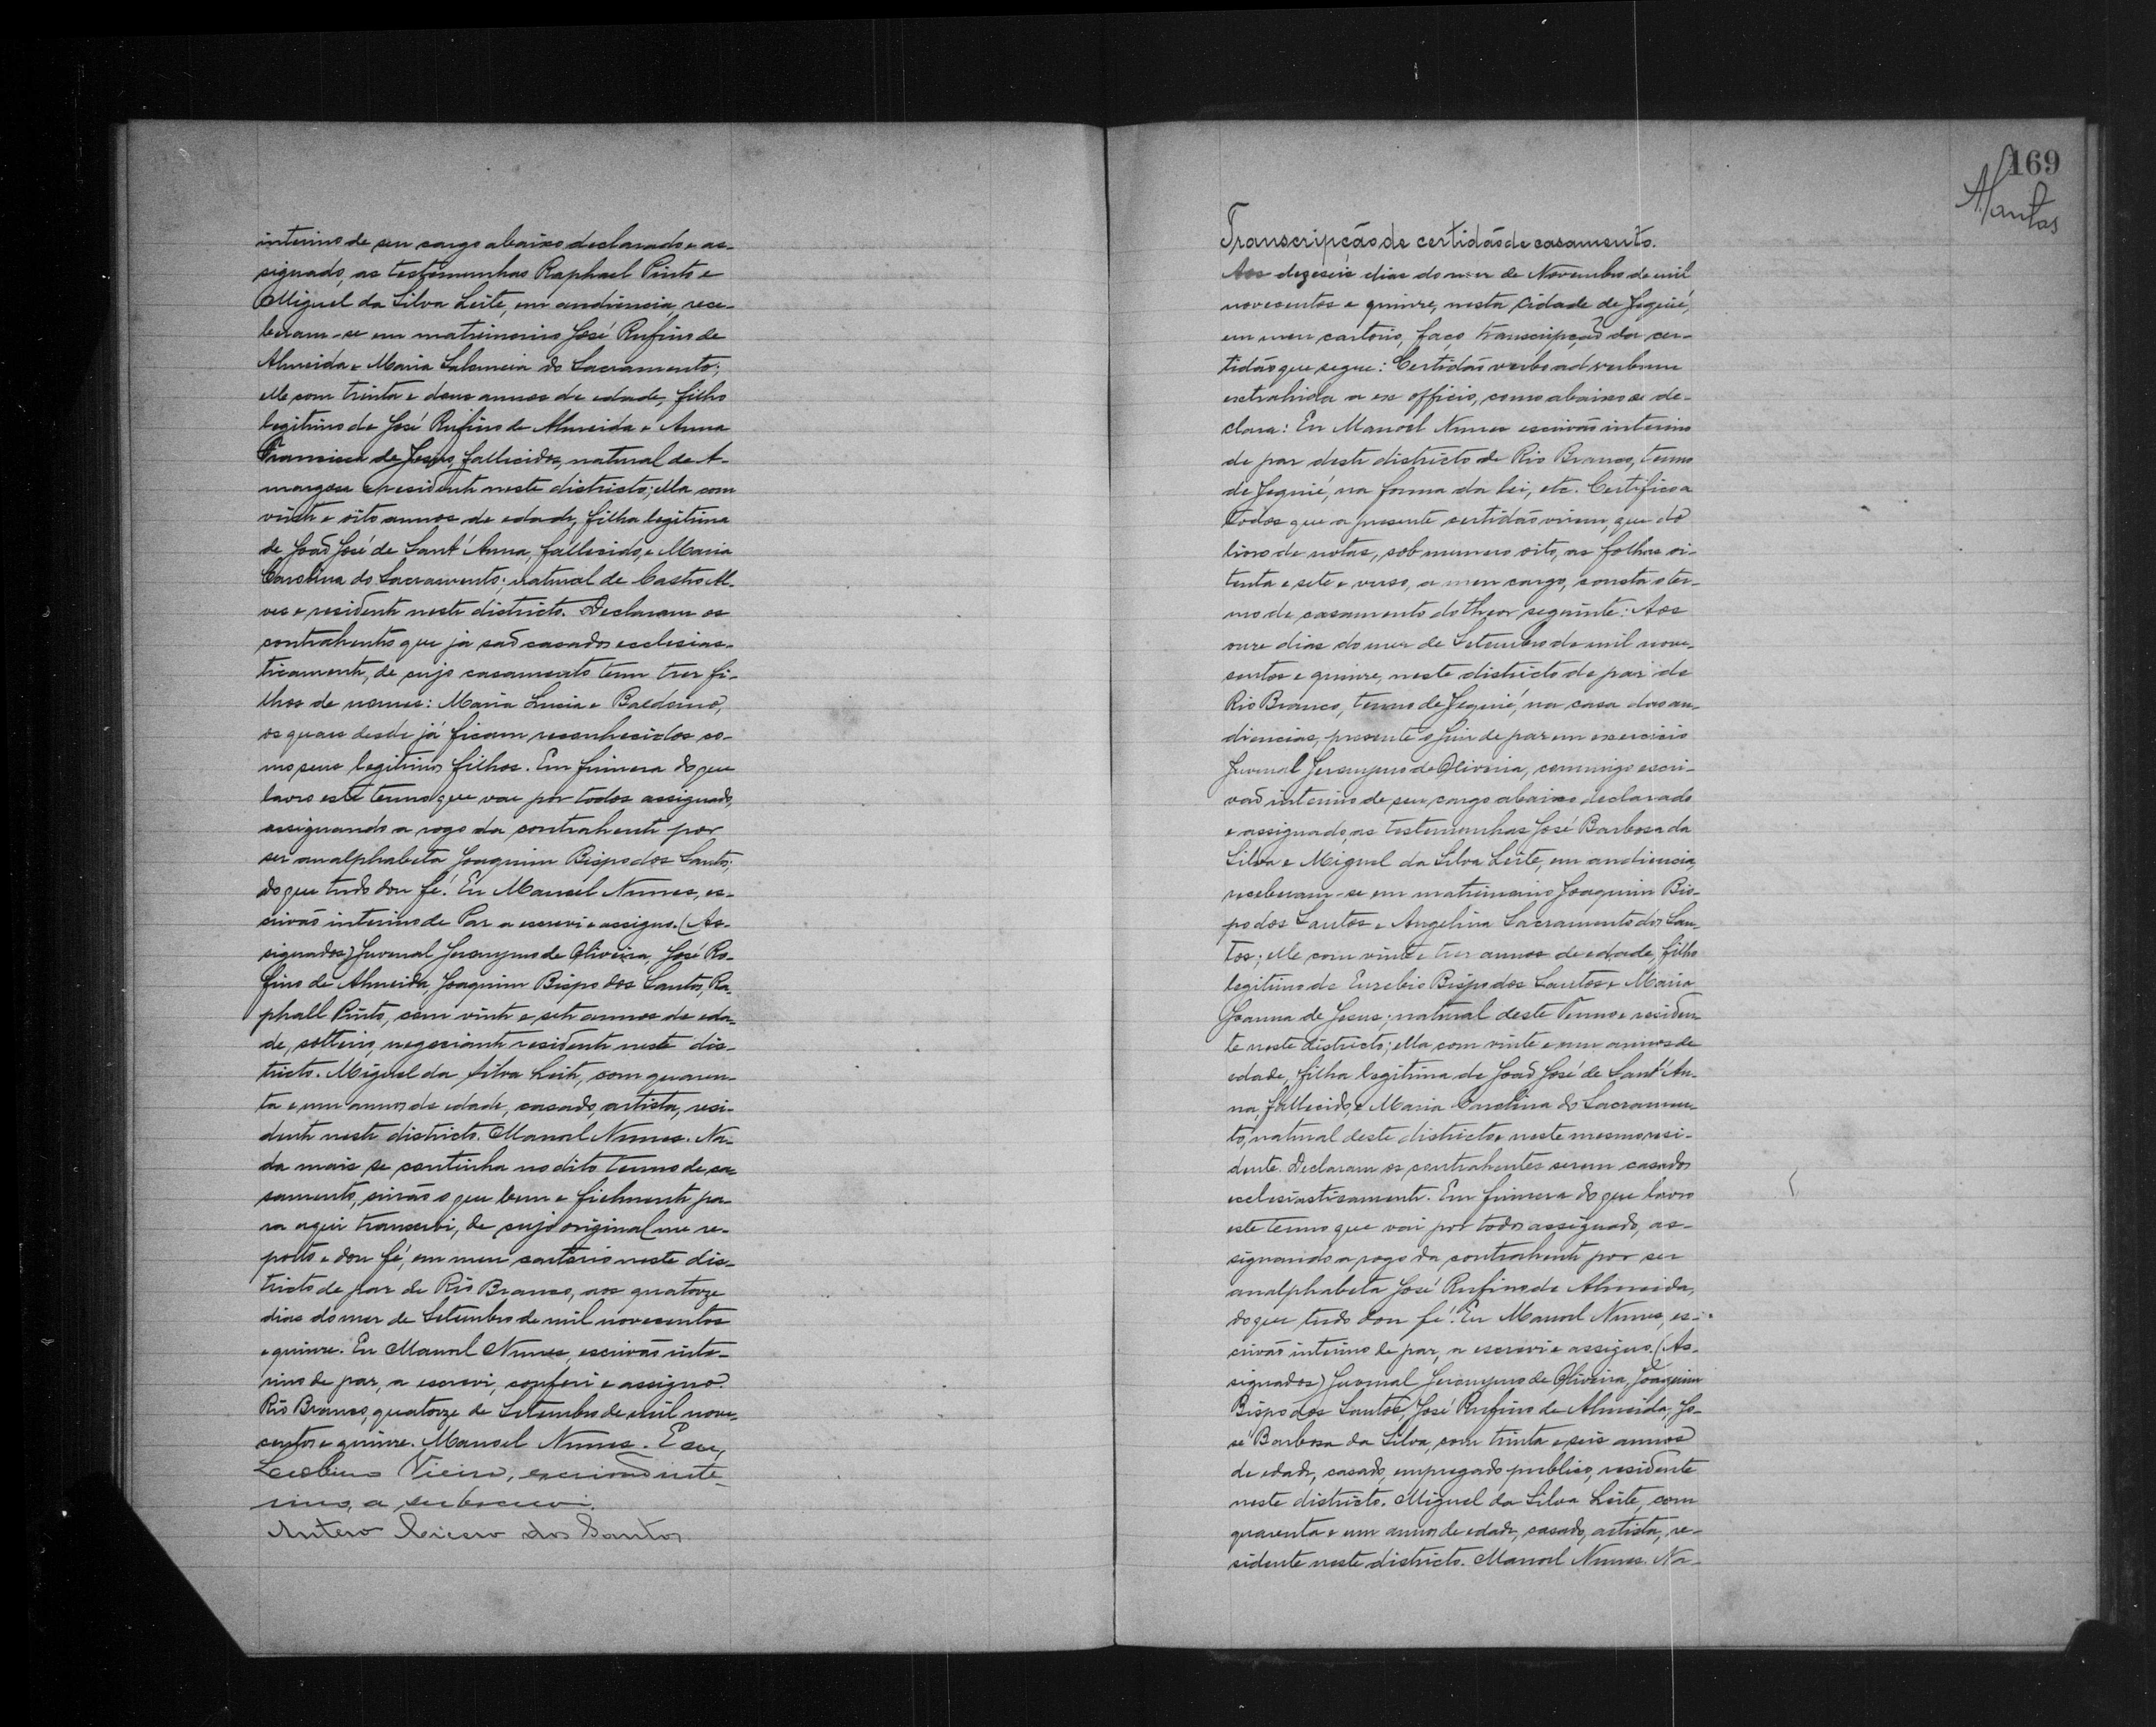 interino de seu cargo abaixo declarado e as-
signado, as testemunhas Raphael Pinto e
Miguel da Silva Leite, em audiencia, rece-
beram-se em matrimonio José Rufino de
Almeida e Maria Salomeia do Sacramento;
elle com trinta e dous annos de edade, filho
legitimo de José Rufino de Almeida e Anna
Francisca de Jesus, fallicidos, natural de A-
margosa e residente neste districto; ella com
vinte e oito annos de edade, filha legitima
de João José de Sant'Anna, fallicido, e Maria
Carolina do Sacramento; natural de Castro Al-
ves e residente neste districto. Declaram os
contrahentes que já são casados ecclesias-
ticamente, de cujo casamento tem tres fi-
lhos de nomes: Maria Lucia e
os quaes desde já ficam reconhecidos co-
mo seus legitimos filhos. Em firmeza do que
lavro este termo que vae por todos assignado,
assignando a rogo da contrahente por
ser analphabeta Joaquim Bispo dos Santos;
do que tudo dou fé. Eu Manoel Nunes, es-
crivão interino de Paz a escrevi e assigno. (As-
signados) Juvenal Jeronymo de Oliveira, José Ru-
fino de Almeida, Joaquim Bispo dos Santos, Ra-
phall Pinto, com vinte e sete annos de eda-
de, solteiro, negociante residente neste dis-
tricto. Miguel da Silva Leite, com quaren-
ta e um annos de edade, casado, artista, resi-
dente neste districto. Manoel Nunes. Na-
da mais se continha no dito termo de ca-
samento, sinão o que bem e fielmente pa-
ra aqui transcrevi, de cujo original me re-
porto e dou fé, em meu cartorio neste dis-
tricto de paz de Rio Branco, aos quatorze
dias do mez de Setembro de mil novecentos
e quinze. Eu Manoel Nunes, escrivão inte-
rino de paz, a escrevi, conferi e assigno.
Rio Branco, quatorze de Setembro de mil nove-
centos e quinze. Manoel Nunes. E eu,
Vieira, escrivão inte-
rino, a subscrevi.
Antero Cicero dos Santos
169
Transcripção de certidão de casamento.
Aos dezeseis dias do mez de Novembro de mil
novecentos e quinze, nesta cidade de Jequié,
em meu cartorio, faço transcripção da cer-
tidão que segue: Certidão verbo ad verbum
extrahida a ex officio, como abaixo se de-
clara: Eu Manoel Nunes escrivão interino
de paz deste districto de Rio Branco, termo
de Jequié, na forma da lei, etc. Certifico a
todos que a presente certidão virem, que do
livro de notas, sob numero oito, as folhas oi-
tenta e sete e verso, a meu cargo, consta o ter-
mo de casamento do theor seguinte: Aos
onze dias do mez de Setembro de mil nove-
centos e quinze, neste districto de paz de
Rio Branco, termo de Jequié, na casa das au-
diencias, presente o Juiz de paz em exercicio
Juvenal Jeronymo de Oliveira, commigo escri-
vão interino de seu cargo abaixo declarado
e assignado, as testemunhas José Barbosa da
Silva e Miguel da Silva Leite, em audiencia,
receberam-se em matrimonio Joaquim Bis-
po dos Santos e Angelina Sacramento dos San-
tos; elle com vinte e tres annos de edade, filho
legitimo de Euzebio Bispo dos Santos e Maria
Joanna de Jesus; natural deste Termo e residen-
te neste districto; ella com vinte e um annos de
edade, filha legitima de João José de Sant'An-
na, fallicido, e Maria Carolina do Sacramen-
to, natural deste districto e neste mesmo resi-
dente. Declaram os contrahentes serem casados
ecclesiasticamente. Em firmeza do que lavro
este termo que vai por todos assignado, as-
signando a rogo da contrahente por ser
analphabeta José Rufino de Almeida,
do que tudo dou fé. Eu Manoel Nunes, es-
crivão interino de paz, a escrevi e assigno. (As-
signados) Juvenal Jeronymo de Oliveira, Joaquim
Bispo dos Santos, José Rufino de Almeida, Jo-
sé Barbosa da Silva, com trinta e seis annos
de edade, casado, empregado publico, residente
neste districto. Miguel da Silva Leite, com
quarenta e um annos de edade, casado, artista, re-
sidente neste districto. Manoel Nunes. Na-